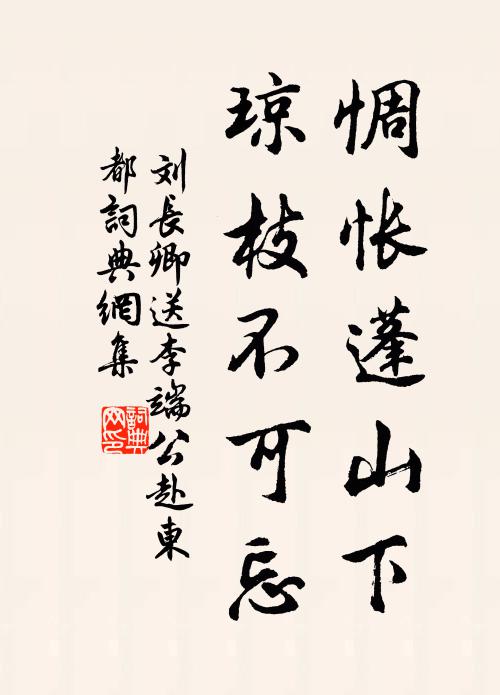 惆怅蓬山下
琼枝不可忘
刘長卿送李端公赴東
都詞典網集
詞典
网印